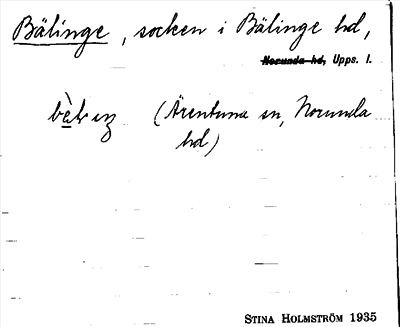 Bälinge, socken i Bälinge hd,
Norunda hd, Upps. l.
(Ärentuna sn, Norunda
hd)
STINA HOLMSTRÖM 1935